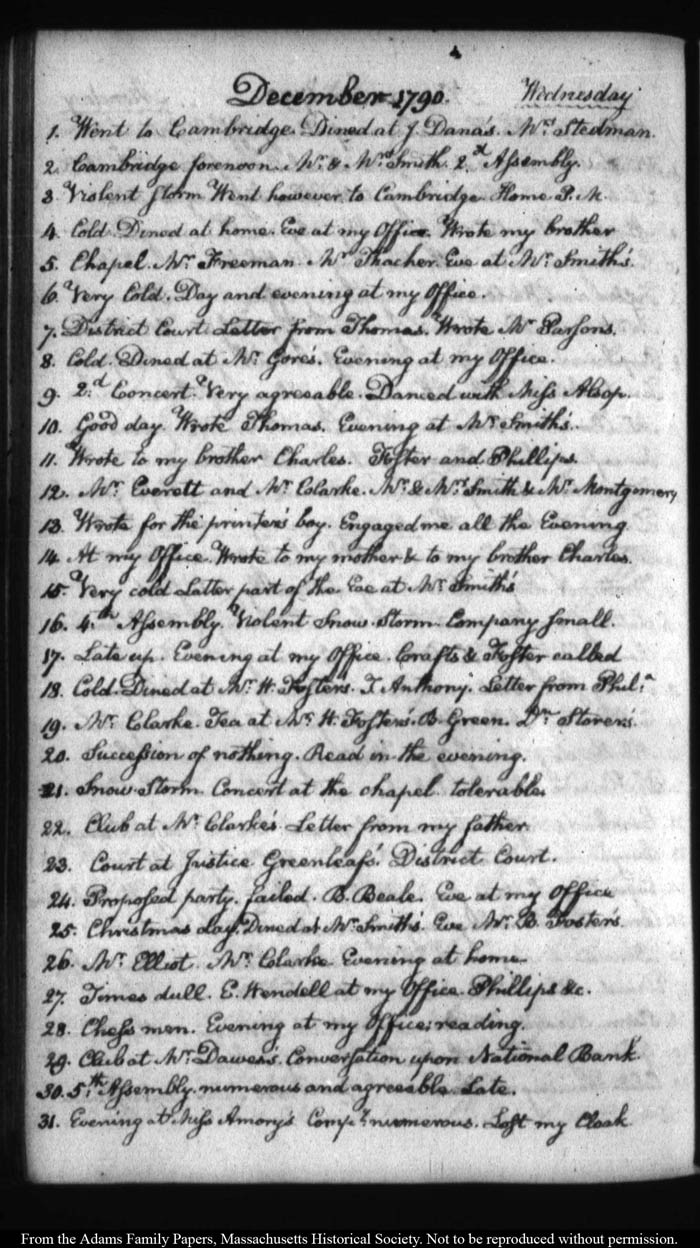 December 1790. Wednesday
1. Went to Cambridge. Dined at J. Dana's. Mrs. Stedman.
2. Cambridge forenoon. Mr. & Mrs. Smith. 2.d Assembly.
3. Violent storm Went however to Cambridge. Home P.M.
4. Cold. Dined at home. Eve at my Office. Wrote my brother
5. Chapel. Mr. Freeman. Mr. Thacher. Eve at Mr. Smith's.
6. Very Cold. Day and evening at my Office.
7. District Court. Letter from Thomas. Wrote Mr. Parsons.
8. Cold. Dined at Mr. Gore's. Evening at my Office.
9. 2.d Concert. Very agreeable. Danced with Miss Alsop.
10. Good day. Wrote Thomas. Evening at Mr. Smith's.
11. Wrote to my brother Charles. Foster and Phillips.
12. Mr. Everett and Mr. Clarke. Mr. & Mrs. Smith & Mr. Montgomery
13. Wrote for the printer's boy. Engaged me all the Evening
14. At my Office. Wrote to my mother & to my brother Charles.
15. Very cold Latter part of the Eve at Mr. Smith's
16. 4.th Assembly. Violent Snow-Storm. Company small.
17. Late up. Evening at my Office. Crafts & Foster called
18. Cold. Dined at Mr. H. Foster's. J. Anthony. Letter from Phil.a
19. Mr. Clarke. Tea at Mr. H. Foster's. B. Green. Dr. Storer's.
20. Succession of nothing. Read in the evening.
21. Snow-Storm. Concert at the chapel tolerable.
22. Club at Mr. Clarke's. Letter from my father.
23. Court at Justice Greenleaf's. District Court.
24. Proposed party. failed. B. Beale. Eve at my Office
25. Christmas day. Dined at Mr. Smith's. Eve Mr. B. Foster's.
26. Mr. Elliot. Mr. Clarke. Evening at home.
27. Times dull. E. Wendell at my Office. Phillips &c.
28. Chess men. Evening at my Office; reading.
29. Club at Mr. Dawes's. Conversation upon National Bank
30. 5.th Assembly. numerous and agreeable. Late.
31. Evening at Miss Amory's Comp.y numerous. Lost my Cloak
From the Adams Family Papers, Massachusetts Historical Society. Not to be reproduced without permission.